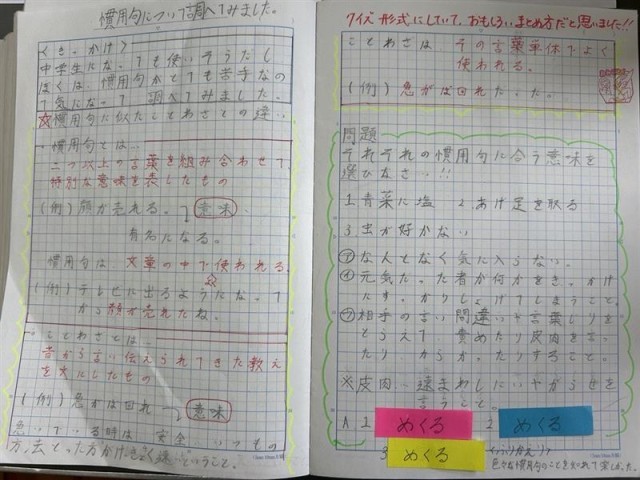 慣用句について調べてみました。
<きっかけ>
中学生になっても使いそうだし
ぼくは、慣用句がとても苦手なの
で気になって 調べてみました。
☆慣用句に似たことわざとの違い
・慣用句とは…
二つ以上の言葉を組み合わせて、
特別な意味を表したもの
(例)顔が売れる。→意味
有名になる。
慣用句は 文章の中で使われる。
(例)テレビに出るようになって
から顔が売れたね。
・ことわざとは…
昔から言い伝えられてきた教え
を文にしたもの
(例)急がば回れ→意味
急いでいる時は 安全
クイズ形式にしていて、おもしろいまとめ方だと思いました!!
ことわざは その言葉単体でよく
使われる。
(例)急がば回れだった。
問題
それぞれの慣用句に合う意味を
選びなさい!!
1.青菜に塩 2.あげ足を取る
3.虫が好かない
㋐なんとなく気に入らない。
㋑元気だった者が何かをきっかけ
に
㋒相手の言い間違いや言葉じりを
とらえて 責めたり皮肉を言っ
たり からかったりすること。
※皮肉…遠まわしにいやがらせを
言うこと。
A 1 めくる 2 めくる
3 めくる
<ふりかえり>
色々な慣用句のことを知れて楽しかった。